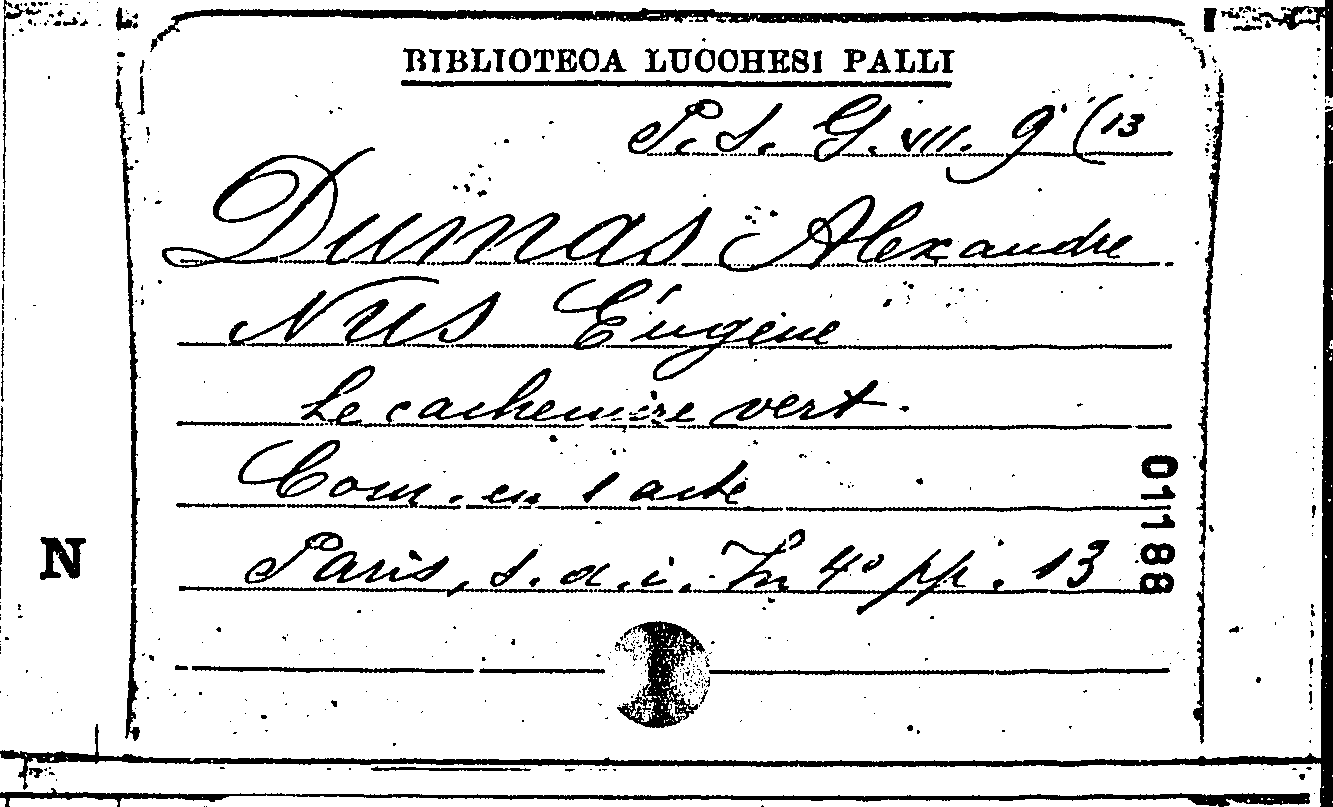 BIBLIOTECA LUCCHESI PALLI
P. S. G. VII. 9 (13
Dumas Alexandre
Nus Eugène
Le cachemire vert.
Com. en 1 acte
Paris, s. d. i. In 4º pp. 13
01188
N